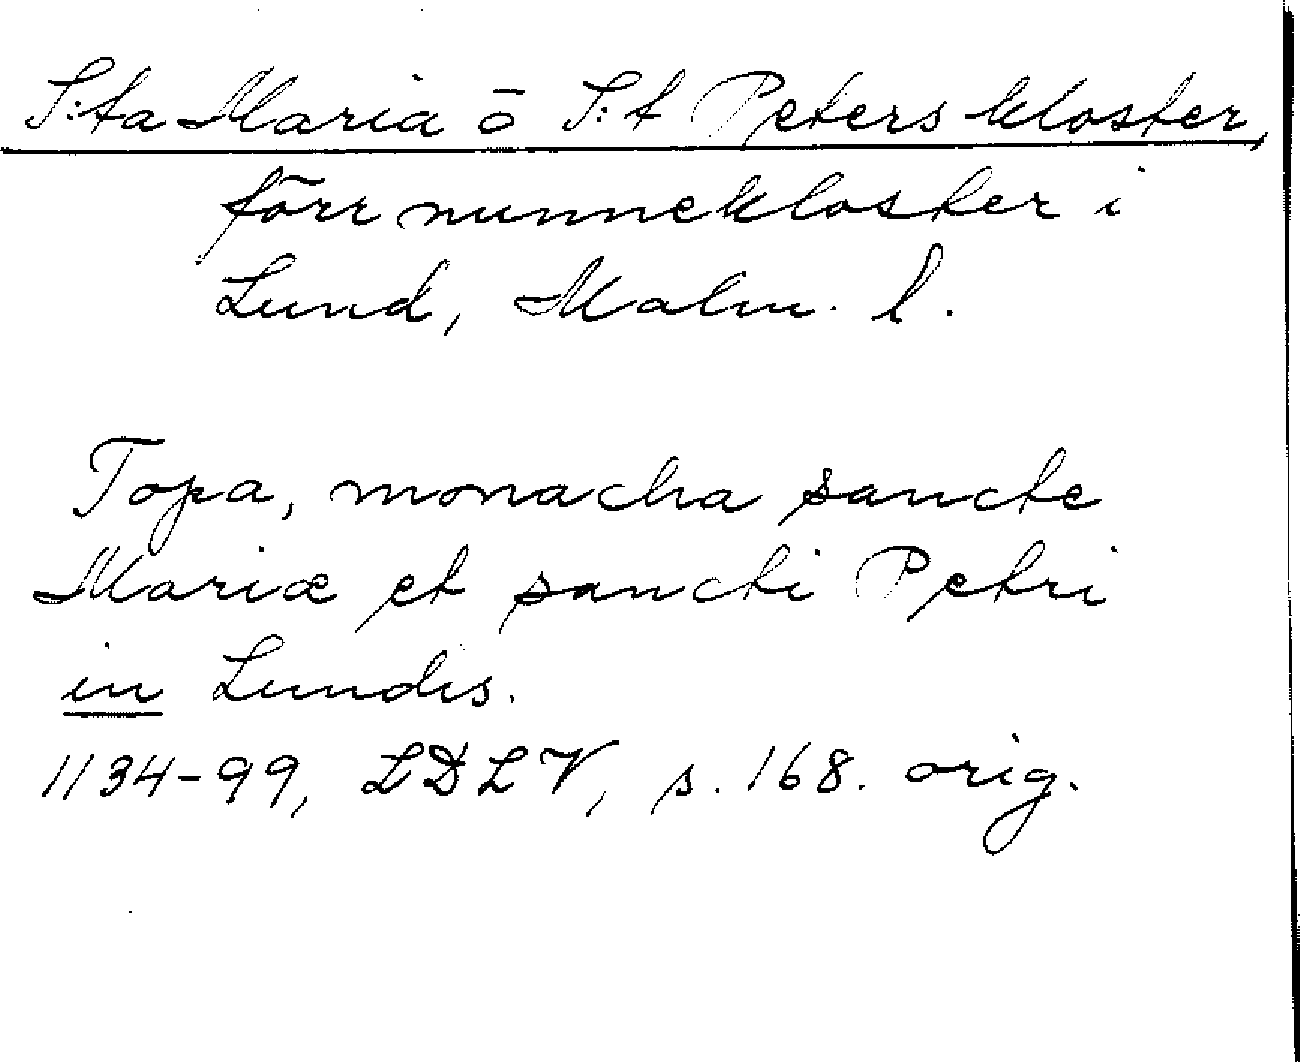 S:ta Maria o̅ S:t Peters kloster,
förr nunnekloster i
Lund, Malm. l.
Topa, monacha sancte
Mariæ et sancti Petri
in Lundis.
1134-99, LDLV, s. 168. orig.